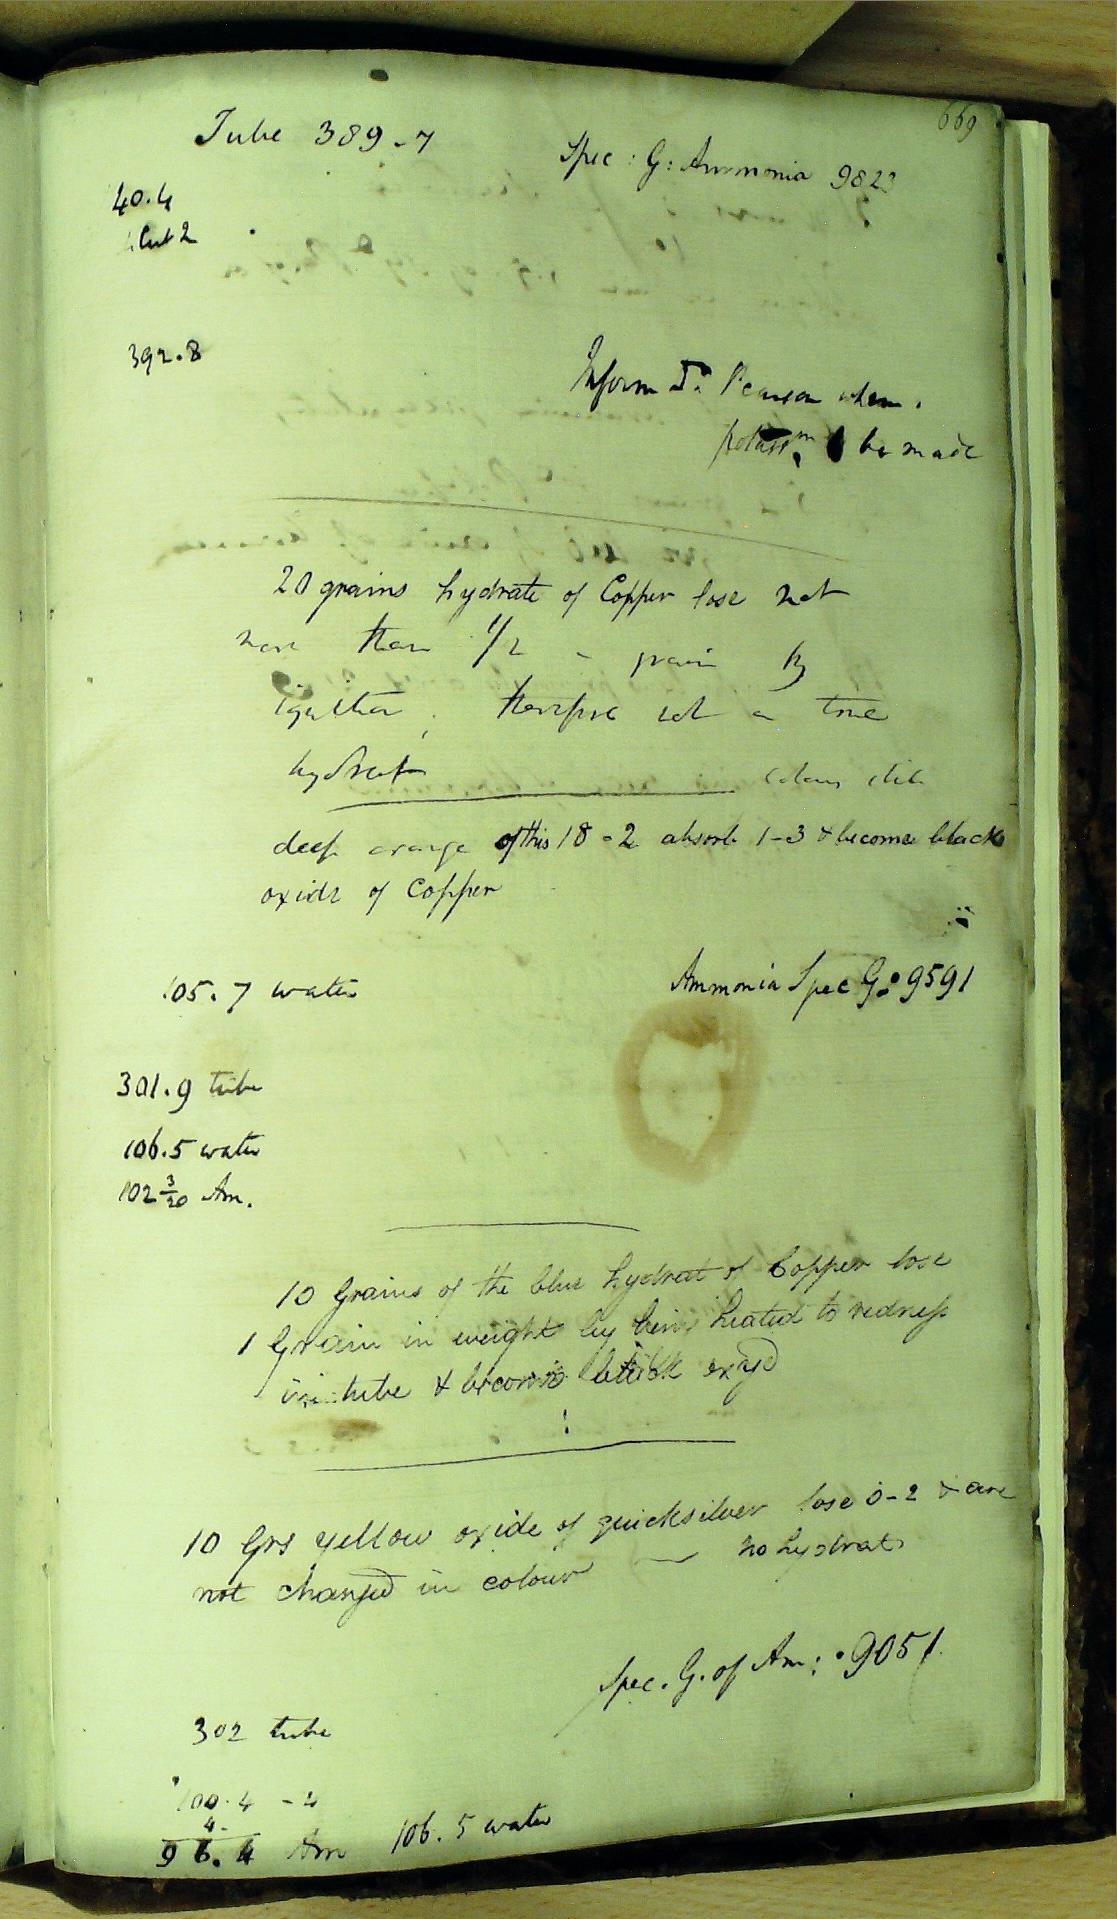 669
Tube 389-7
Spec: G: Ammonia 982
40.4
Cut 2
392.8
Inform Dr. Pearson when
potassm. be made
20 grains hydrate of Copper lose not
more than 1/2 - grain by
ignition, therefore not a true
hydrat
deep orange of this 18-2 absorb 1-3 & become black
oxide of Copper
105.7 water
Ammonia Spec G: 9591
301.9 tube
106.5 water
102 3/20 Am.
10 Grains of the blue hydrat of Copper lose
1 Grain in weight by being heated to redness
in tube & becomes black oxyd
10 Grs yellow oxide of quicksilver lose 0-2 & are
not changed in colour — no hydrat
Spec. G. of Am: .9051
302 tube
100.4 - 4
4.
96.4 Am 106.5 water